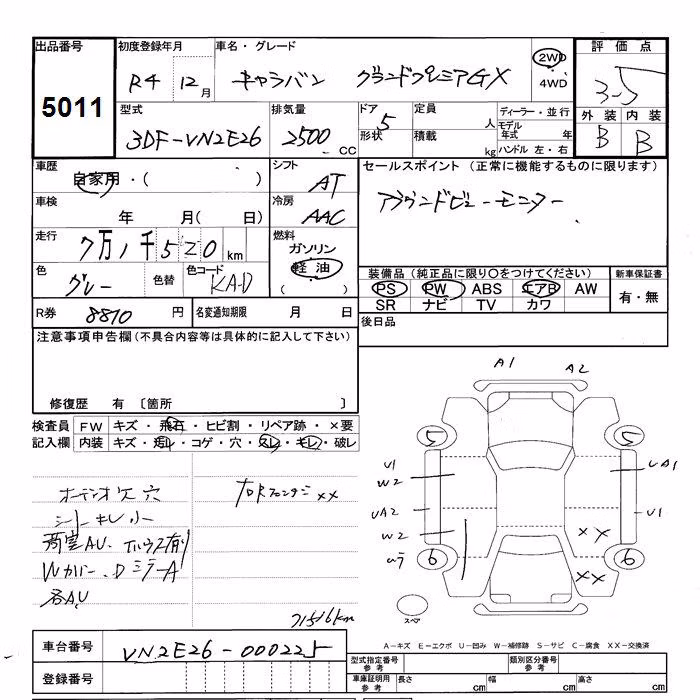 出品番号
5011
初度登録年月
R4 12月
車名・グレード
キャラバン グランドプレミアGX
2WD
4WD
評価点
3-5
外装 内装
B B
型式
3DF-VN2E26
排気量
2500 CC
ドア
5
形状
定員
人
積載
kg
ディーラー・並行
モデル年式 年
ハンドル 左・右
車歴
自家用・( )
シフト
AT
車検
年 月( 日)
冷房
AAC
走行
7万1千520km
燃料
ガソリン
軽油
( )
色
グレー
色替
色コード
KAD
R券 8810 円
名変通知期限 月 日
セールスポイント (正常に機能するものに限ります)
アラウンドビューモニター
装備品 (純正品に限り〇をつけてください)
PS PW ABS エアB AW
SR ナビ TV カワ
新車保証書
有・無
後日品
注意事項申告欄 (不具合内容等は具体的に記入して下さい)
修復歴 有 〔箇所 〕
検査員記入欄
FW キズ・飛石・ヒビ割・リペア跡・×要
内装 キズ・汚レ・コゲ・穴・スレ・キレ・破レ
オーデオ欠 穴
シートキレ小
荷室AU
Wカバー、DミラーA
各AU
フロントRフェンダー××
71516km
A1 A2
5 5
U1
W2
UA2
W2
UA1
U1
×× ××
6 6
スペア
A－キズ E－エクボ U－凹み W－補修跡 S－サビ C－腐食 XX－交換済
車台番号 VN2E26-000225
登録番号
型式指定番号 参考
類別区分番号 参考
車庫証明用 参考
長さ cm
幅 cm
高さ cm